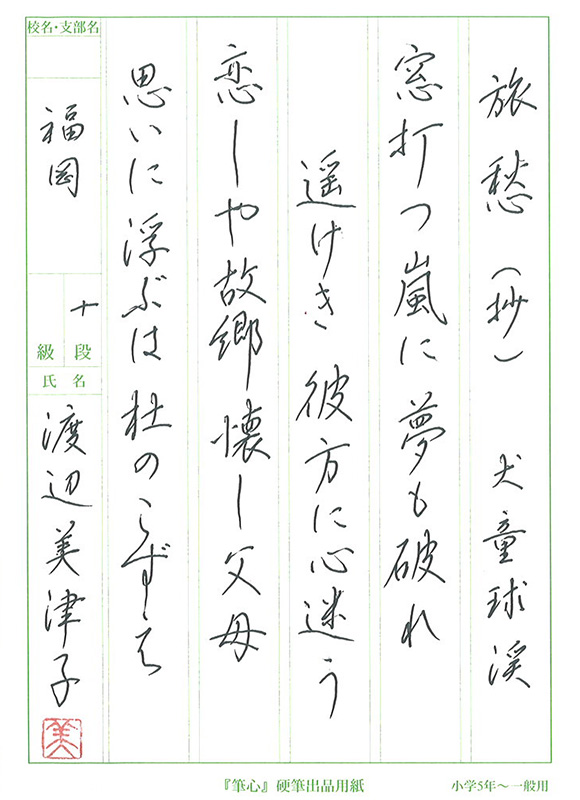 旅愁(抄) 犬童球渓
窓打つ嵐に夢も破れ
遥けき 彼方に心迷う
恋しや故郷 懐し父母
思いに浮ぶは杜のこずえ
校名・支部名
福岡
十段
級
氏名
渡辺美津子
美
『筆心』硬筆出品用紙
小学5年〜一般用